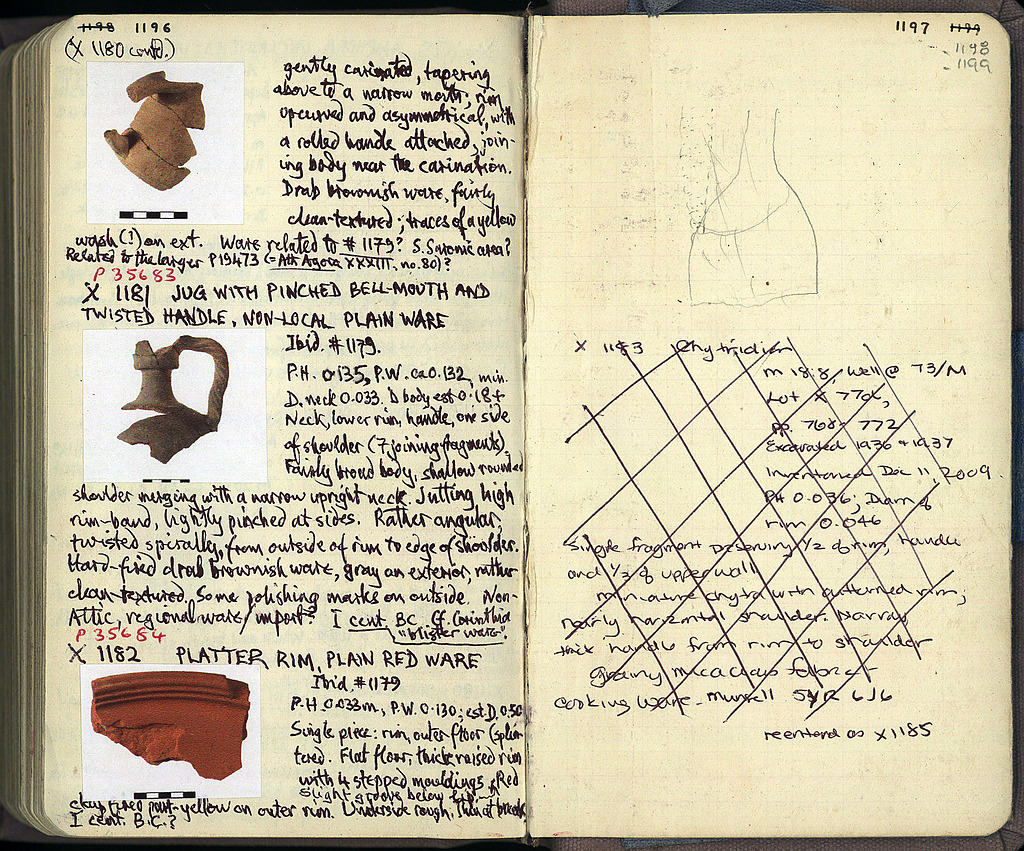 1198 1196
(X 1180 contd.)
gently carinated, tapering
above to a narrow mouth; rim
upcurved and asymmetrical, with
a rolled handle attached, join-
ing body near the carination.
Drab brownish ware, fairly
clean-textured; traces of a yellow
wash (!) on ext. Ware related to # 1179? S. Saronic area?
Related to the larger P19473 (= Ath Agora XXXIII, no. 80)?
P 35683
X 1181 JUG WITH PINCHED BELL-MOUTH AND
TWISTED HANDLE, NON-LOCAL PLAIN WARE
Ibid. #1179.
P.H. 0.135, P.W. ca 0.132, min.
D. neck 0.033. D body est 0.18+
Neck, lower rim, handle, one side
of shoulder (7 joining fragments).
Fairly broad body, shallow rounded
shoulder merging with a narrow upright neck. Jutting high
rim-band, lightly pinched at sides. Rather angular,
twisted spirally, from outside of rim to edge of shoulder.
Hard-fired drab brownish ware, gray on exterior, rather
clean-textured. Some polishing marks on outside. Non-
Attic, regional ware/import? I cent. BC. Cf. Corinthia
"blister ware".
P 35684
X 1182 PLATTER RIM, PLAIN RED WARE
Ibid. #1179
P.H. 0.033m, P.W. 0.130; est. D. 0.50
Single piece: rim, outer floor (splin-
tered. Flat floor, thick raised rim
with 4 stepped mouldings. Red
Slight groove below lip
clay fired yellow on outer rim. Underside rough,
I cent. B.C.?
1197 1199
1198
1199
X 1183 Chytridion
M 18:8, Well @ 73/M
Lot X 772,
pp. 768- 772
Excavated 1936 + 1937
Inventoried Dec 11, 2009.
PH 0.036, Diam of
rim 0.046
Single fragment preserving 1/2 of rim, handle
and 1/3 of upper wall
miniature chytra with outturned rim,
nearly horizontal shoulder. Narrow
thick handle from rim to shoulder
grainy micaceous fabric
cooking ware - Munsell 5YR 6/6
reentered as X1185